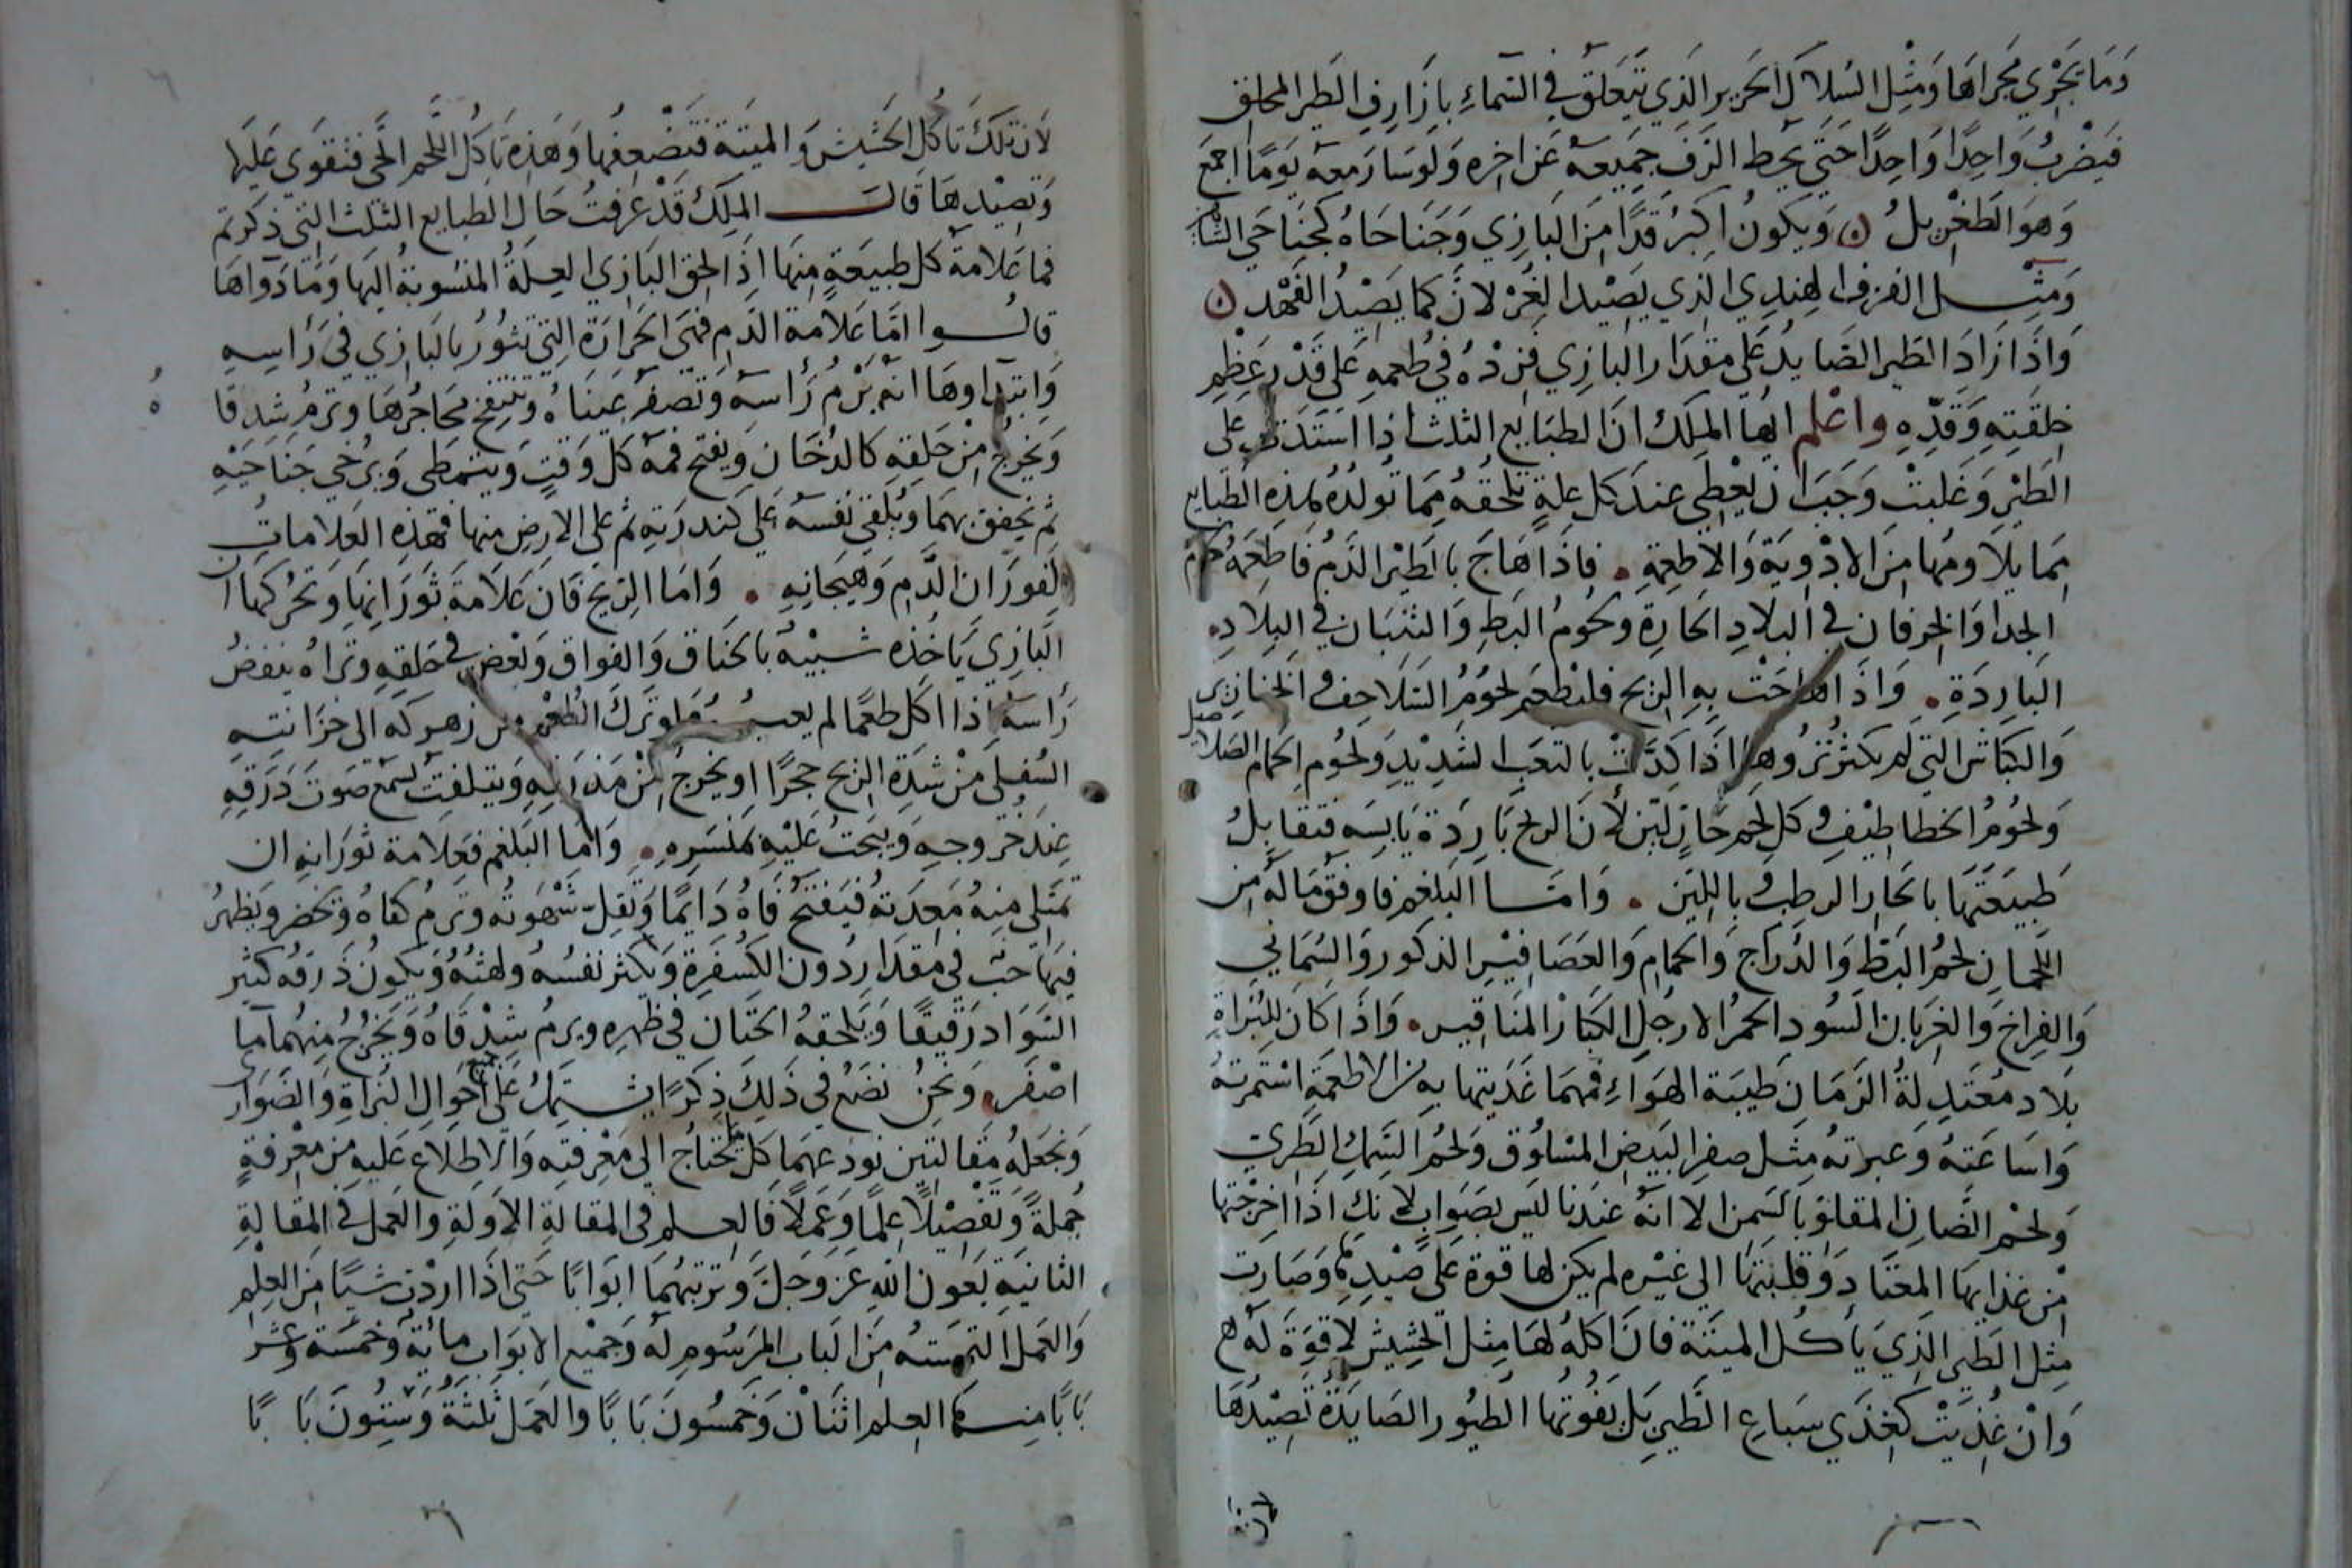 وَمَا يَجْرِي مَجراهَا وَمِثْل السُلاك الحَرير الذِي يَتَعَلق في السَماءِ بازار في الطَير المحلق
فيَضْربُ وَاحِدًا وَاحِدًا حَتى يحط الزف جَميعه عَن اخِره وَلو سَار معه يَومًا اجمَع
وَهوَ الطغْرِيلُ ۞ وَيكونُ اكبرُ قدًا مِنَ البَازي وَجَنَاحَاهُ كجَناحَي
وَمثْــل الهِندِي الذي يَصْيد الغُزلانَ كما يَصْيدُ الفَهْد ۞
وَاذَا زَادَ الطَير الصَايدُ عَلى مقدَار البازِي فزدْهُ في طُعمِهِ عَلى قَدْر عَظِم
خلقتِهِ وَقدّهِ واعْلم ايهَا الملِكُ انَ الطبَايع الثلث اذا عَلى
الطَيْر وَغَلبتْ وَجَبَ انْ يعْطى عندَ كل علةٍ تَلحَقهُ مِما تولدُهُ هذِهِ الطَبايع
مما يلاَومُها مِنَ الادْويَة وَالاطعِمةِ . فاذَا هَاجَ بالطيْر الدَمُ فَاطعِمَهُ لحوم
الجدا وَالخِرفان في البلادِ الحَارة وَلحُومُ البَط وَ في البلادِ
البَارِدَةِ . وَاذَا هاجَتْ بِهِ الرّيح فلنطْعم لحُومُ السَّلاحف وَ الخَنازير
وَالكباش التي لم يكثر نُزُوهَا اذَا كدَّتْ بالتعَبِ الشَديدِ وَلحُوم الحمَام
وَلحُومُ الخطاطيْف وَ كل لحم حَارٍ ليّن لأن الريح بَاردَة يَابسَةِ فتقابِلُ
طَبيعَتهَا بالحَار الرطب وَ باللين . وَامَّــا البَلغم فاوفق مَا لهُ مِن
اللحمَان لحمُ البَطِ وَالدَّراج وَالحمامِ وَالعَصَافِيْر الذكور وَالسُّمَاني
وَالفِراخ وَالغِربان السُود الحمرُ الارجُل الكبَار المنَاقيْر . وَاذَا كَان للبُزاةِ
بلاد مُعْتَدِلةُ الزَمَانَ طَيبَة الهوَاءِ فمهمَا غَذَيتها بهِ مِن الاطعِمَةِ اسْتمَرتهُ
وَاسَاغَتهُ وَعبرَتهُ مِثل صفر البَيض المسْلوُق وَلحمُ السَمك الطَري
وَلحْم الضَّان المقلوّ بالسَمن الا انهُ عِندَنا ليسَ بصَوَابٍ لانكَ اذَا اخرَجْتها
مِنْ غذائِهَا المعتَاد وَقلبتَها الى غيْره لم يكن لها قوة عَلى صَيْدِهَا وَصَارت
مِثل الطَير الذِي يَأكُل الميتَة فانَ اكلهُ لهَا مِثل الحشِيش لا قوَةَ لَهُ
وَانْ غُذيَتْ كغِذَى سِبَاعِ الطَيرِ بَل يَفُوتُها الطُيور الصَايدَة تَصِيْدُهَا
لان تلكَ تاكُل الحَشيش وَالميتَة فتضْعِفُها وَهَذِهِ تَاكل اللَّحم الحَي فتقوَى عَليْها
وَتصِيْدِهَا قَالــــ المَلِكُ قَدْ عَرَفتُ حَال الطَبايع الثلث التي ذكرتم
فما عَلامَة كل طَبيعَةٍ مِنهَا اذَا لحق البَازي العِلة المنسُوبةُ اليَها وَمَا دَواهَا
قالـُـــوا امَّا عَلامَة الدَمِ فهيَ الحَرارَة التي تثوُرُ بالبَازِي في رَأسِهِ
وَابتِداوهَا انه يَرْمُ رَأسه وَتصْفر عَينَاهُ وتنتفخ محَاجرُهَا وَترمُ شدقا
وَيخرُج مِنْ حَلقهِ كالدُخَانِ وَيفتح فمهُ كل وَقتٍ وَيتَمطى وَيُرخي جَنَاحَيْهِ
ثم يخفق بهمَا وَيُلقى نفسَهُ عَلى كَندرَتِهِ ثم عَلى الارض مِنها فهَذِه العَلاماتُ
لفوَرَان الدَّم وَهيجَانِهِ . وَامَا الرّيح فَان عَلامَة ثَوَرَانِهَا وَتحرُكهَا ان
البَازيَ يَاخذه شَــبيْهٌ بالخنَاق وَالفواق وَبَعْض في حَلقهِ وتَراهُ ينفضُ
رَاسه اذَا اكل طعمًا لم الى خزَانتِهِ
السُفلى مِنْ شدَة الرّيح حجَرًا اوْ يخرُج مِنْ وَيَتلفتُ لسمع صَوتَ ذَرقِهِ
عِندَ خُروجهِ وَيَبحَث عَليْهِ بمنْسَرهِ . وَامَّا البَلغم فعَلامة ثوَرَانِهِ ان
تمتَلى مِنهُ مَعِدَتهُ فيَفتح فَاهُ دَايمًا وَتقِلّ شَهْوَتُه وترِم كفاهُ وتخضر وَيَظهرُ
فِيهَا حبّ في مقدَار دُون الكُسْفرة وَيكثر نفسُهُ وَلهثُهُ وَيكونُ ذَرقه كثير
السَوَاد رَقيقًا وَيَلحَقهُ الختَان في ظهرِه وَيرمُ شِدْقَاهُ وَيَخْرُجُ مِنهُما مَا
اصْفر . وَنحْنُ نَضَعُ في ذَلِكَ ذِكرًا يشـتمِل عَلى جميع احَوالِ البُزاةِ وَالضَوَار
وَنجعَلهُ مقَالتَين نودِعِهمَا كلما يحتاج الى مَعْرفتِهِ وَالاطِلاع عَليهِ مِن مَعْرفةٍ
جُملةً وَتفصْيلاً عِلمًا وَعَمَلاً فَالعلم في المقالة الاولةِ وَالعَمل في المقالةِ
الثانيَةِ بَعَون اللهِ عَز وَجَلَّ وَترتبهُمَا ابوَابًا حَتى اذَا ارَدْتَ شيئًا مِنَ العِلْم
وَالعَمل التمَستهُ مِنَ البَاب المرَسُوم لهُ وَجميْع الابوَاب مايةٌ وَخمسَة وَعشر
بَابًا مِنــها العِلم اثنَانْ وَخمسُونَ بَابًا وَالعَمَل ثَلثةٌ وَستُونَ بَا بًا